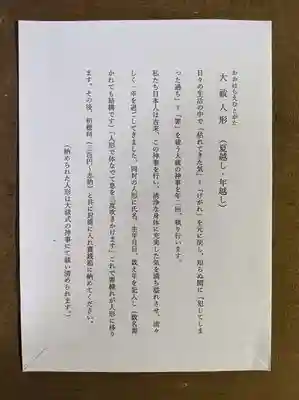 おおはらえひとがた
大祓人形 (夏越し・年越し)
日々の生活の中で「枯れてきた気」=「けがれ」を元に戻し、知らぬ間に「犯してしま
った過ち」=「罪」を祓う大祓の神事を年二回、執り行います。
私たち日本人は古来、この神事を行い、清浄な身体に充実した気を満ち溢れさせ、清々
しく一年を過ごしてきました。同封の人形に氏名、生年月日、数え年を記入し(数名書
かれても結構です)「人形で体なでて息を三度吹きかけます」これで罪穢れが人形に移り
ます。その後、初穂料(三百円~志納)と共に封筒に入れ賽銭箱に納めてください。
(納められた人形は大祓式の神事にて祓い清められます。)